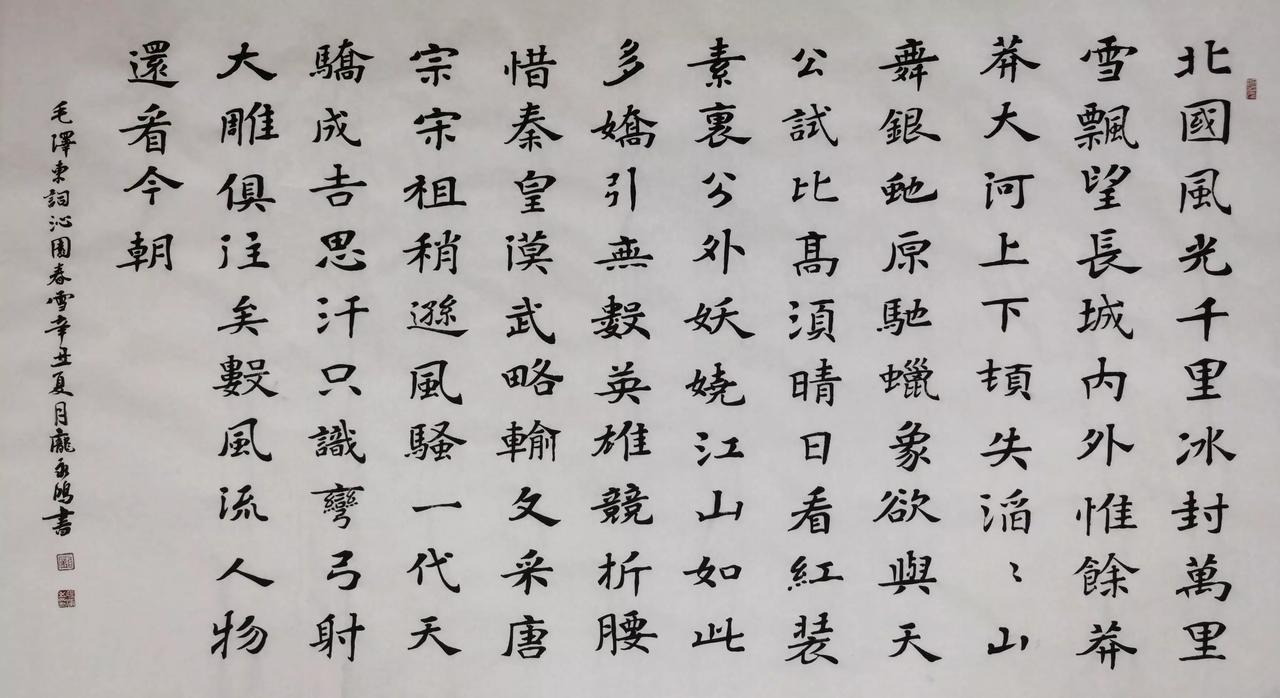 北國風光千里冰封萬里
雪飄望長城内外惟餘莽
莽大河上下頓失滔〻山
舞銀虵原馳蠟象欲與天
公試比髙湏晴日看紅装
素裏分外妖嬈江山如此
多嬌引無數英雄競折腰
惜秦皇漢武略輸文采唐
宗宋祖稍遜風騷一代天
驕成吉思汗只識彎弓射
大雕俱往矣數風流人物
還看今朝
毛澤東詞沁園春雪辛丑夏月龐永鴻書